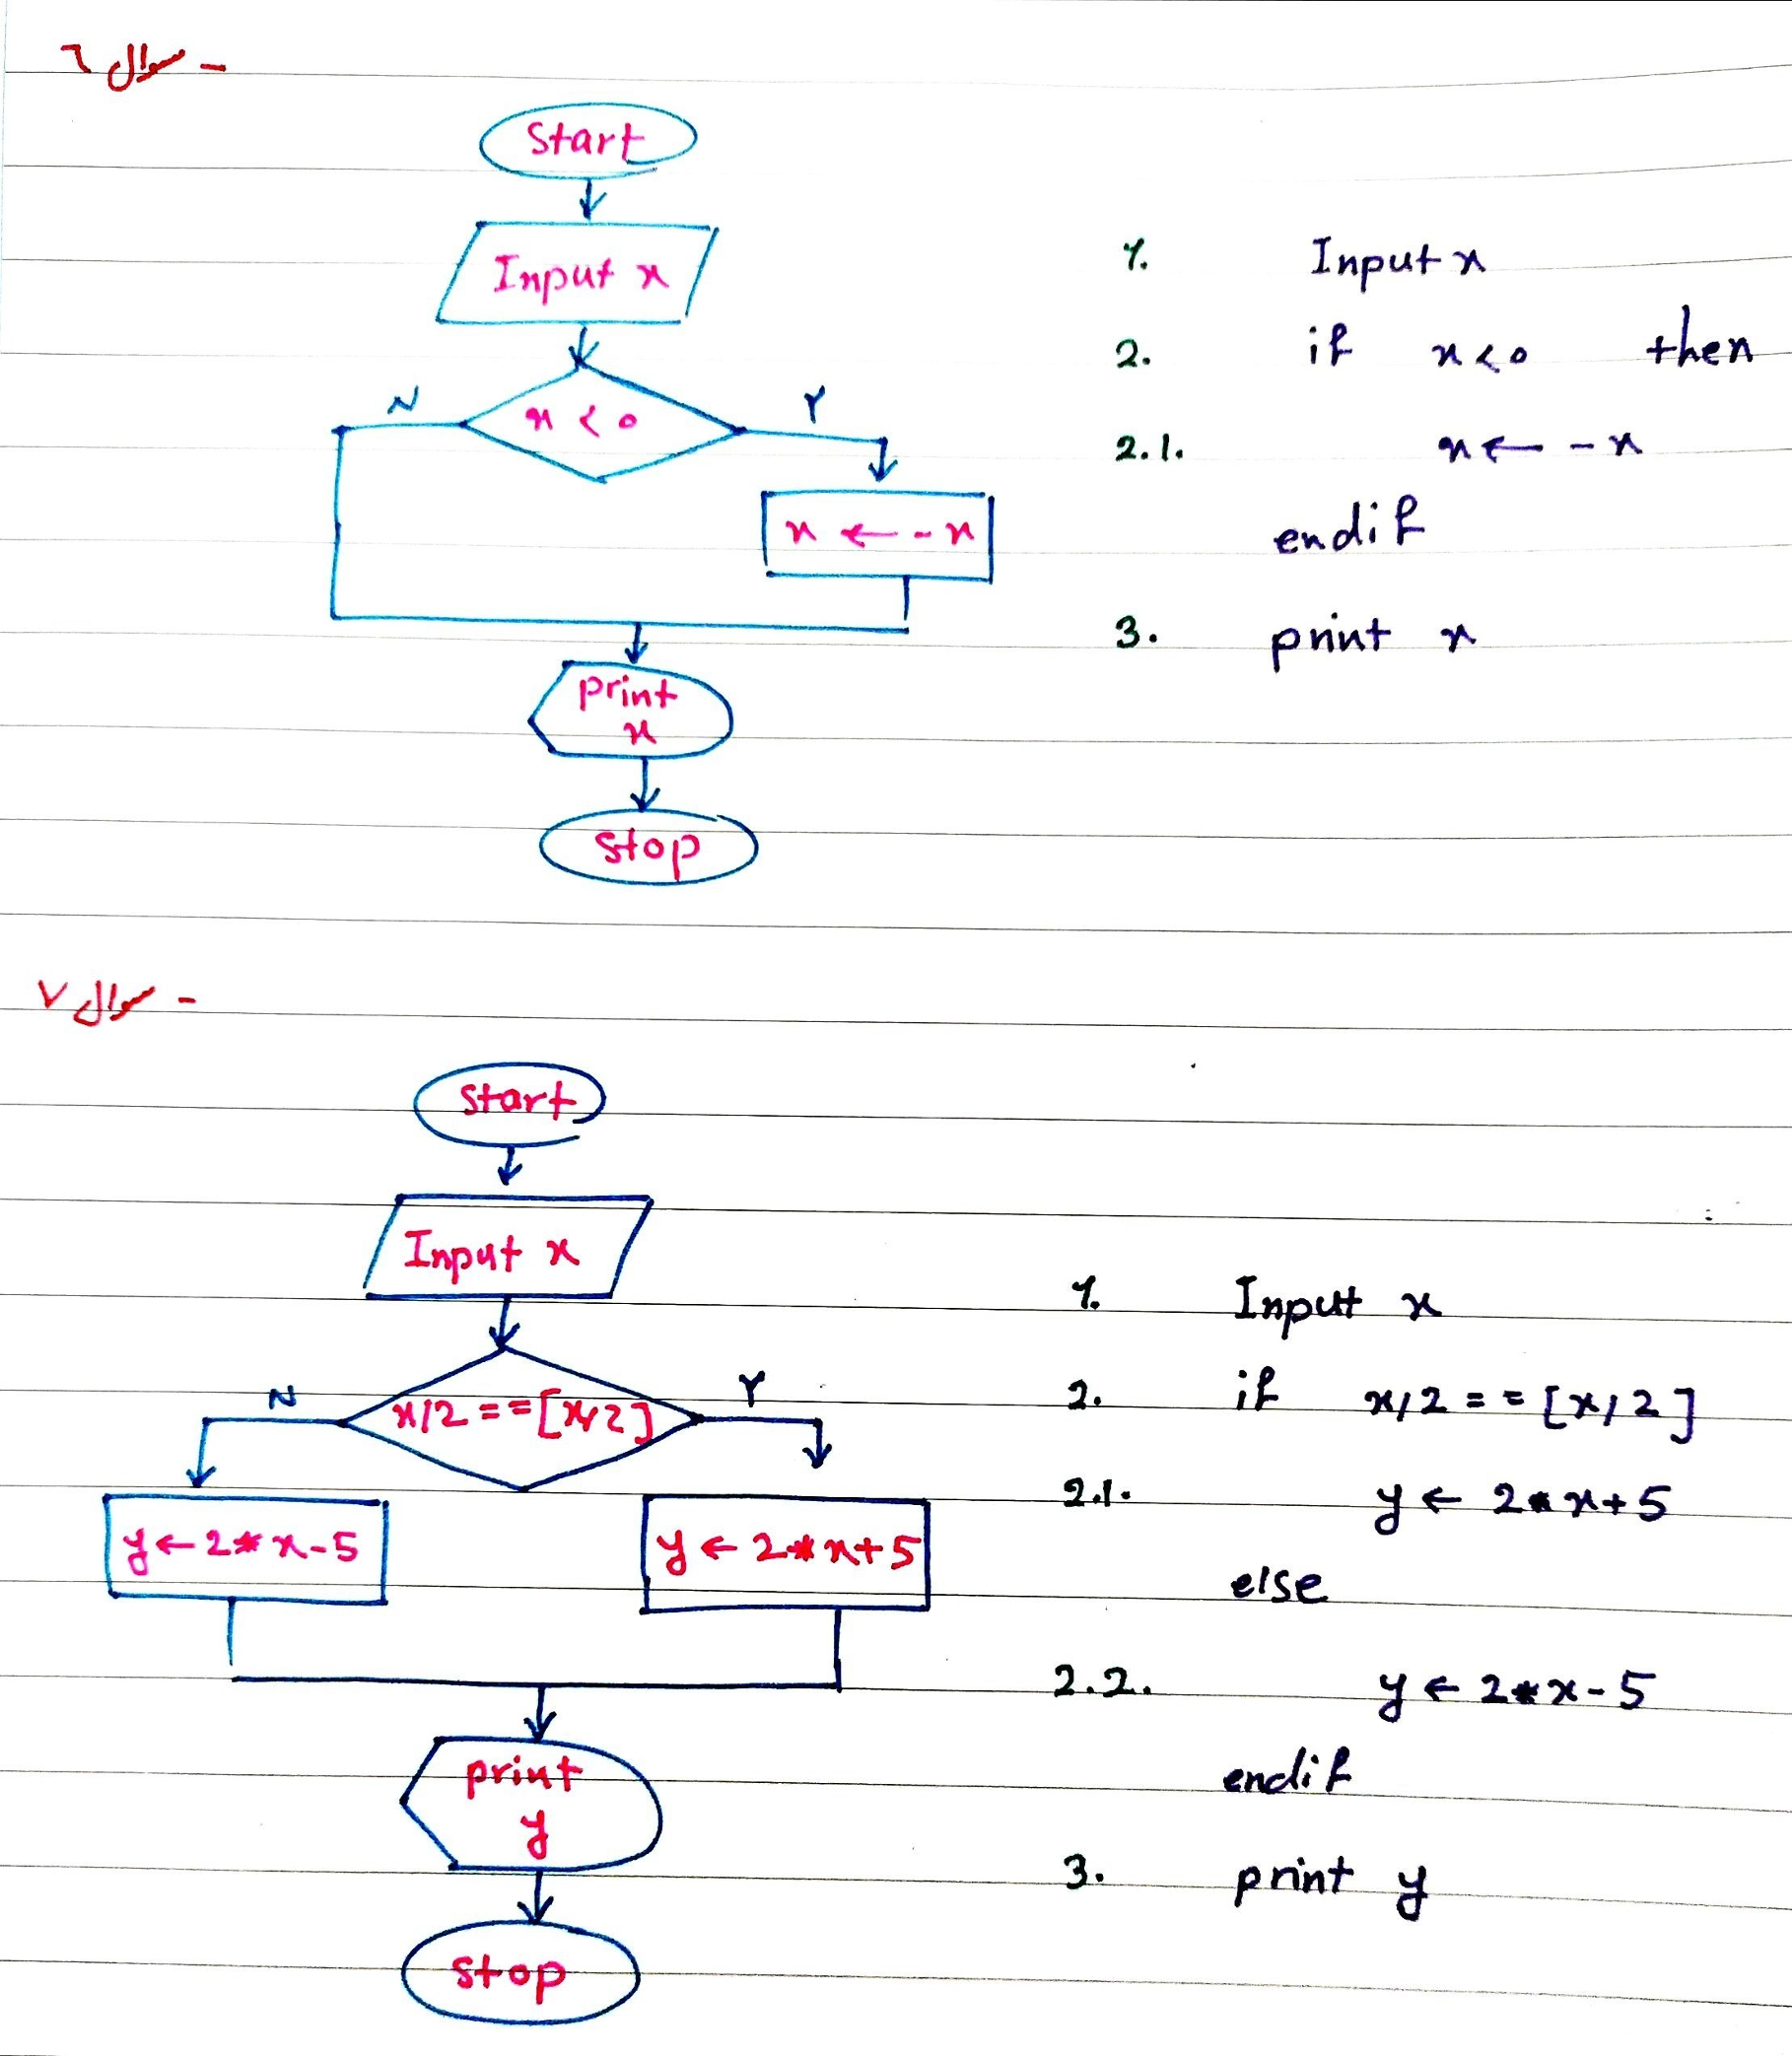 سوال ٦ -
Start
Input x
x < 0
N
Y
x ← - x
print
x
stop
1. Input x
2. if x < 0 then
2.1. x ← - x
endif
3. print x
سوال ٧ -
start
Input x
x/2 == [x/2]
N
Y
y ← 2 * x - 5
y ← 2 * x + 5
print
y
stop
1. Input x
2. if x/2 == [x/2]
2.1. y ← 2 * x + 5
else
2.2. y ← 2 * x - 5
endif
3. print y